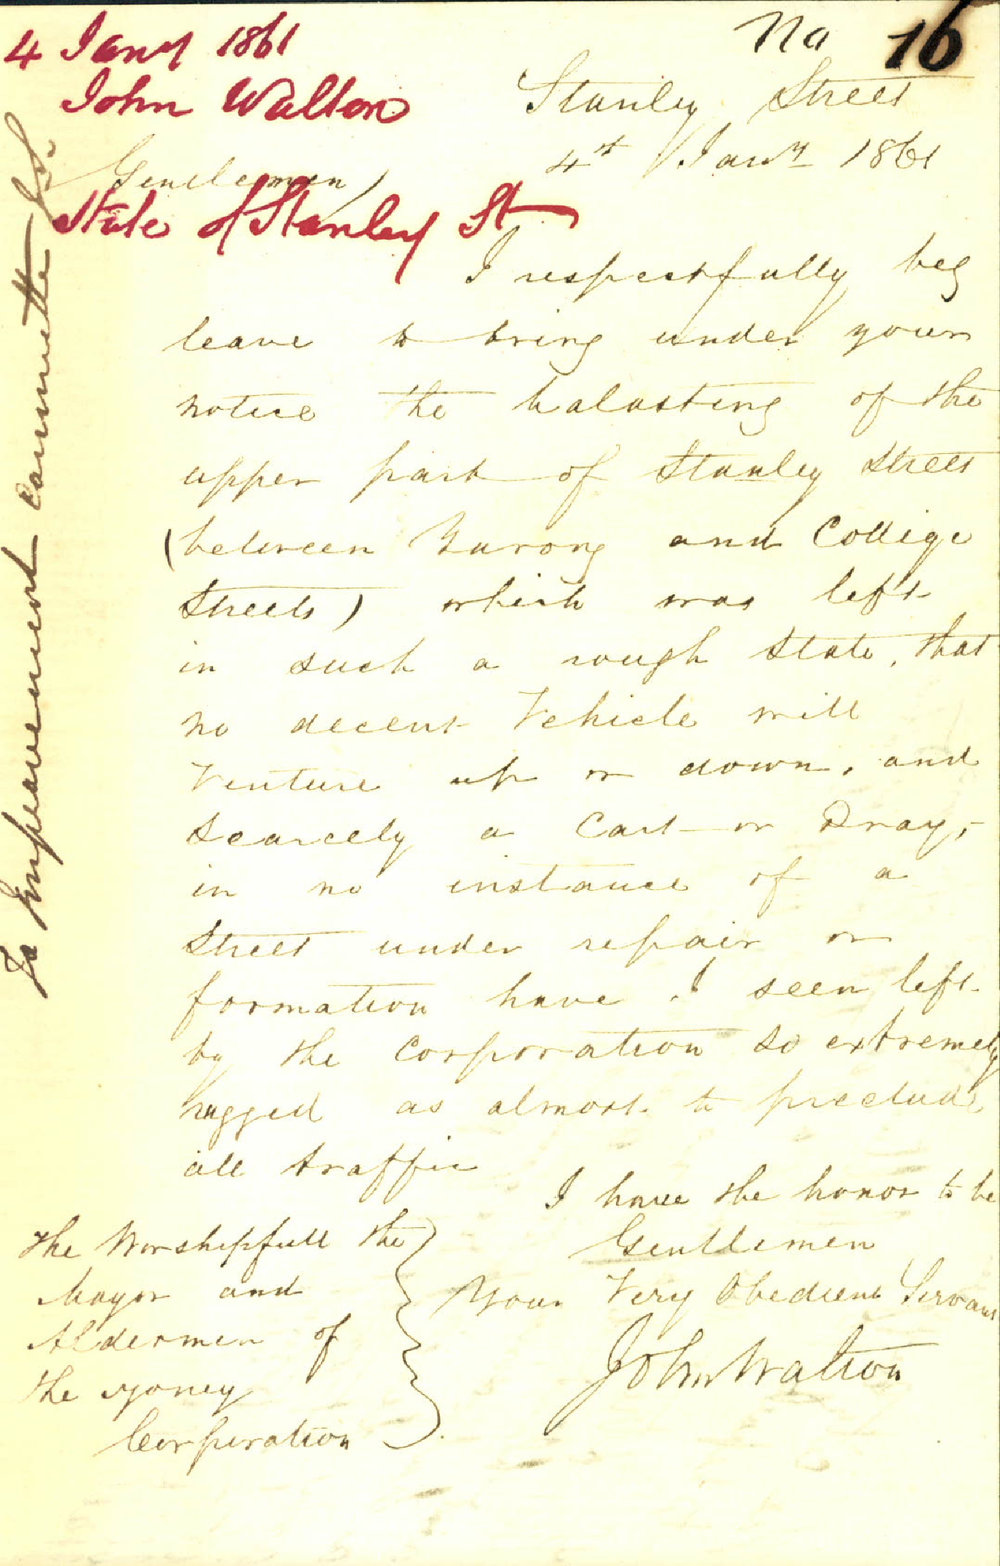 No 16
4 Jany 1861
John Walton
State of Stanley St
Stanley Street
4th Jany 1861
Gentlemen,
I respectfully beg
leave to bring under your
notice the balasting of the
upper part of Stanley Street
(between Yurong and College
Streets) which was left
in such a rough state, that
no decent Vehicle will
Venture up or down, and
scarcely a Cart or Dray,-
in no instance of a
Street under repair or
formation have I seen left
by the Corporation so extremely
rugged as almost to preclude
all traffic
I have the honor to be
Gentlemen
Your Very Obedient Servant
John Walton
The Worshipfull the
Mayor and
Aldermen of
the Sydney
Corporation
To Improvement Committee